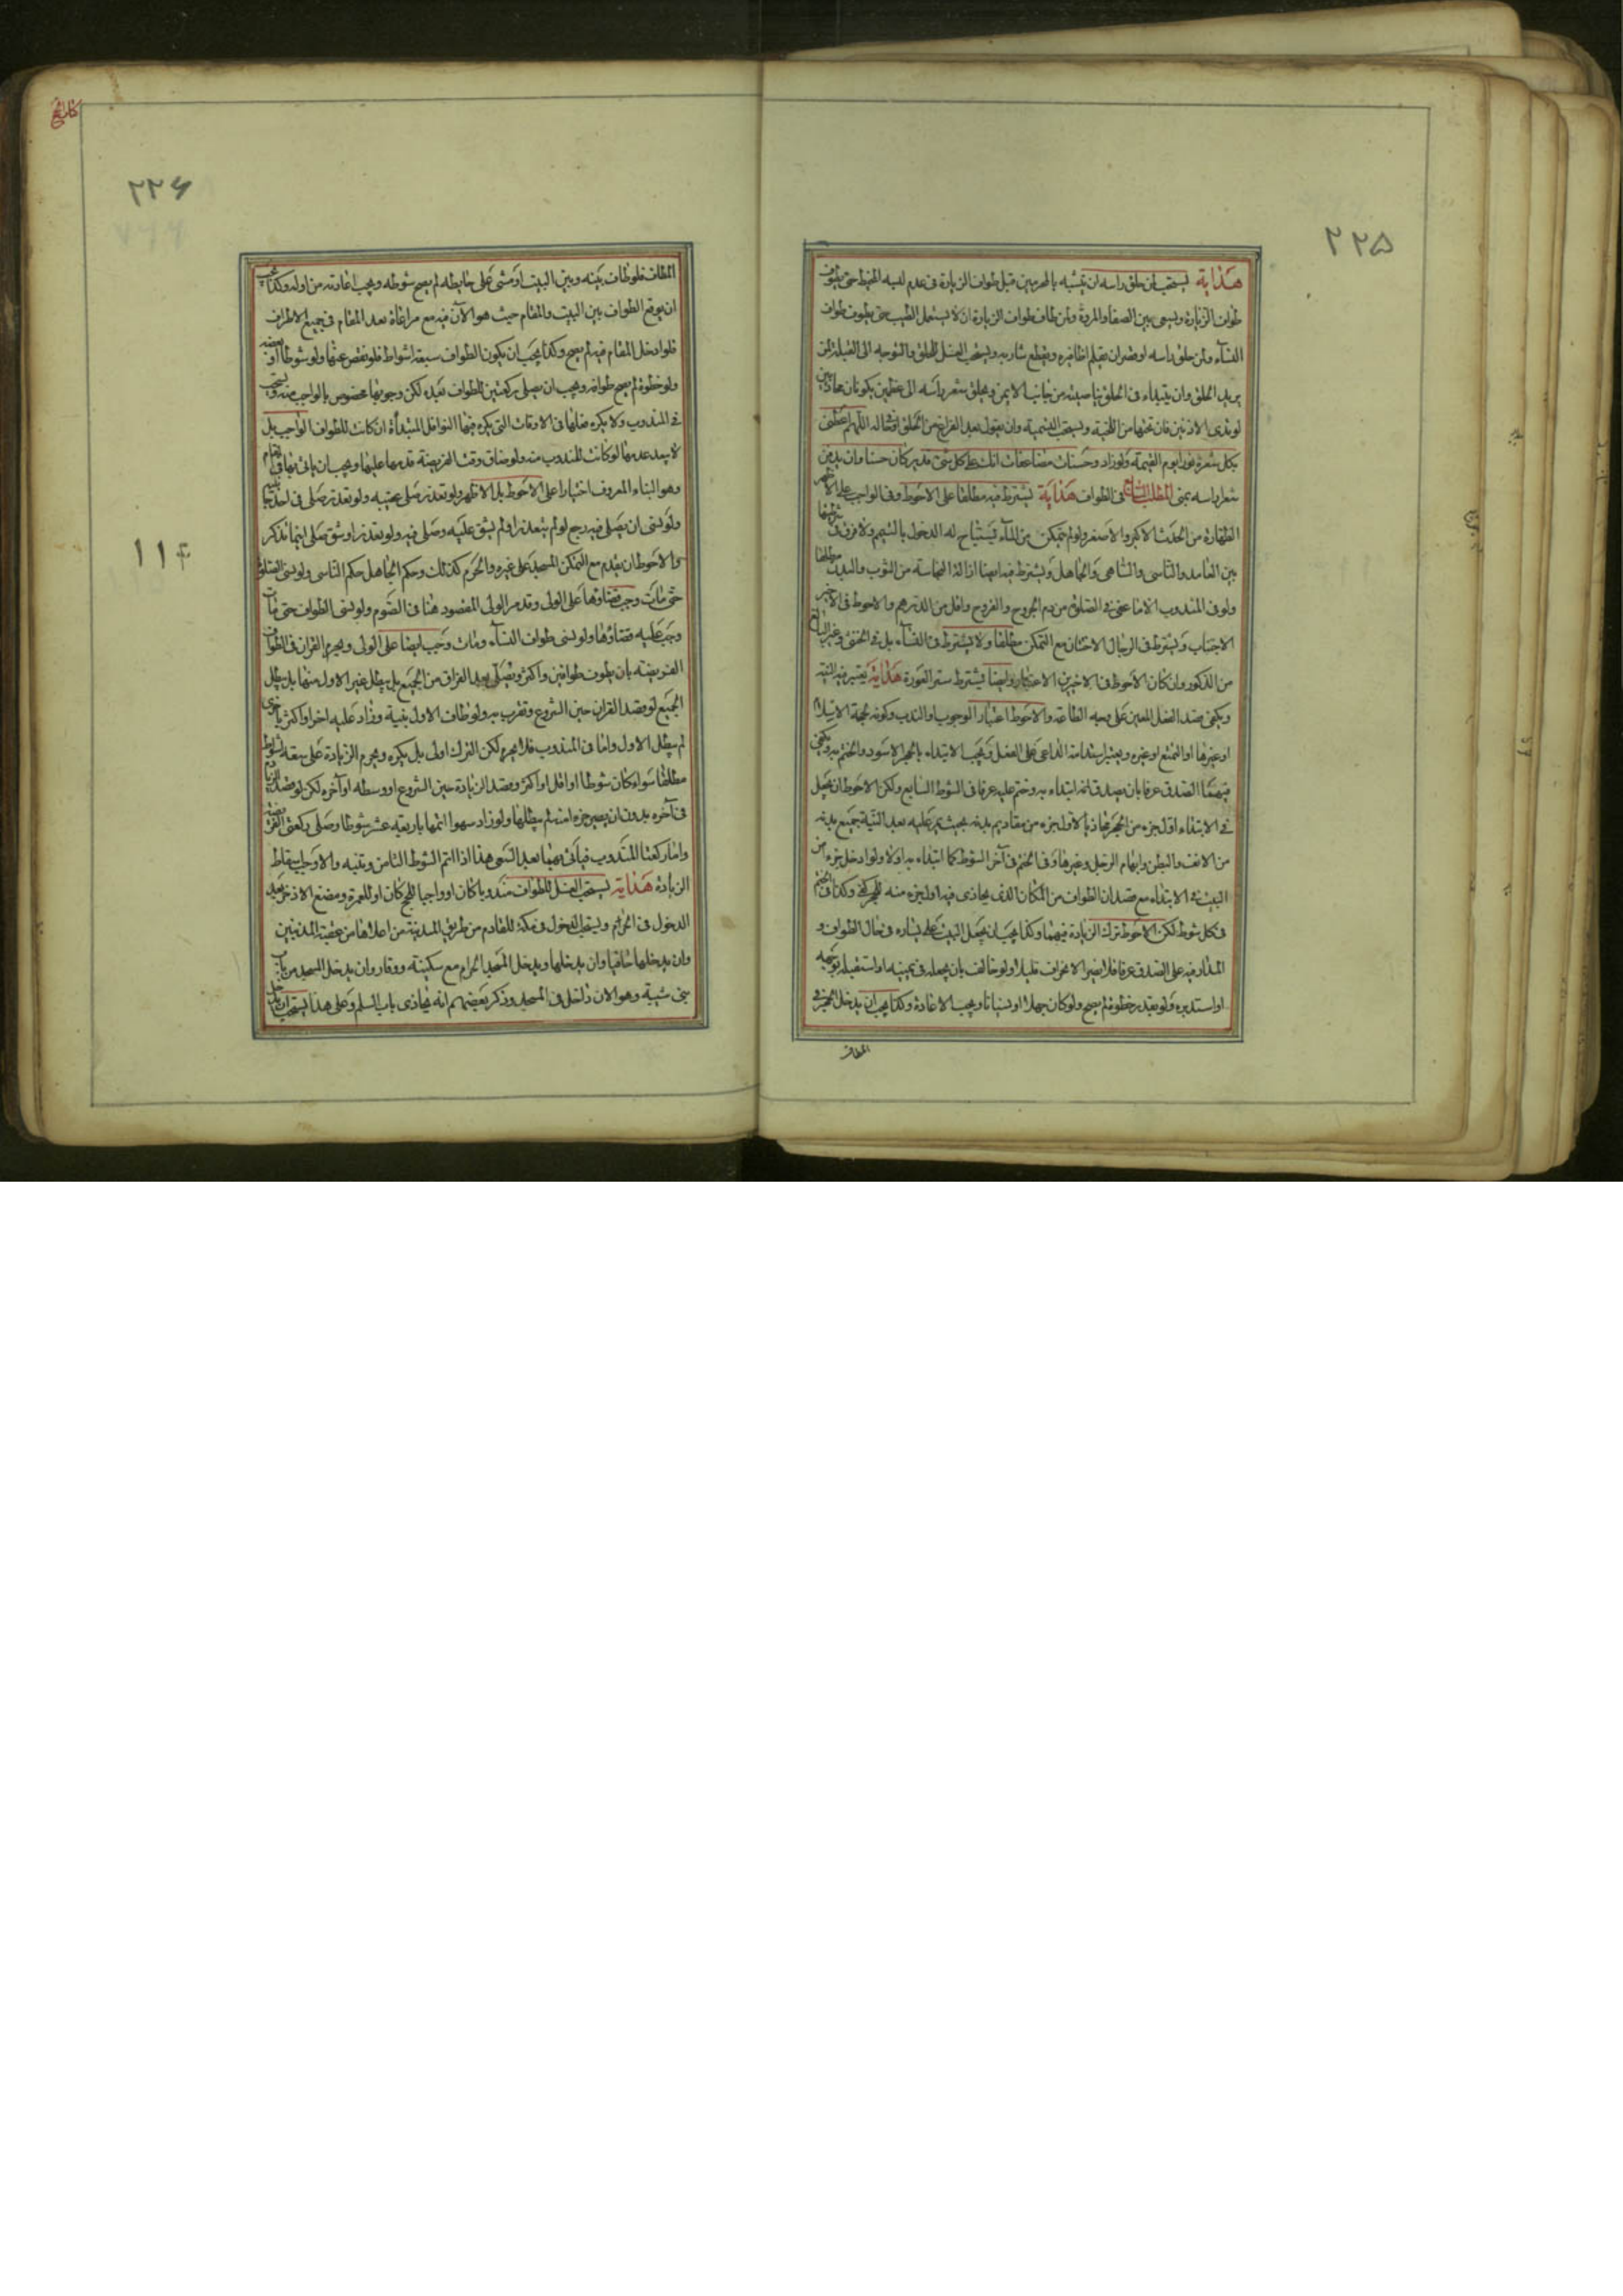 ٢٢٥
هداية يستحب لمن حلق راسه ان يتشبه بالمحرمين قبل طواف الزيارة فى عدم لبسه المخيط حتى يطوف
طواف الزيارة ويسعى بين الصفا والمروة ولمن طاف طواف الزيارة ان لا يستعمل الطيب حتى يطوف طواف
النسآء ولمن حلق راسه او قصر ان يقلم اظافيره ويقطع شاربه ويستحب الغسل للحلق والتوجه الى القبلة لمن
يريد الحلق وان يبتداء فى الحلق بناصيته من جانب الايمن ويحلق شعر راسه الى عظمين يكونان محاذيين
لوتدى الاذنين فان تحتها من اللحية ويستحب التسمية وان يقول بعد الفراغ من الحلق او حاله اللهم اعطنى
بكل شعرة نورا يوم القيمة ولو زاد وحسنات مضاعفات انك على كل شئ قدير كان حسنا وان يدفن
شعر راسه بمنى المطلب السابع فى الطواف هداية يشترط فيه مطلقا على الاحوط وفى الواجب على الاظهر
الطهارة من الحدث الاكبر والاصغر ولو لم يتمكن من المآء فيستباح له الدخول بالتيمم ولا فرق فى شرطيتها
بين العامد والناسى والساهى والجاهل ويشترط فيه ايضا ازالة النجاسة من الثوب والبدن مطلقا
ولو فى المندوب الا ما عفى فى الصلوة من دم الجروح والقروح واقل من الدرهم والاحوط فى الاخير
الاجتناب ويشترط فى الرجال الاختتان مع التمكن مطلقا ولا يشترط فى النسآء بل فى الخنثى وغير البالغ
من الذكور وان كان الاحوط فى الاخيرين الاعتبار وايضا يشترط ستر العورة هداية يعتبر فيه النية
ويكفى قصد الفعل المعين على وجه الطاعة والاحوط اعتبار الوجوب او الندب وكونه لحجة الاسلام
او غيرها او التمتع او غيره ويعتبر استدامة الداعى على الفعل ويجب الابتداء بالحجر الاسود والختم به ويكفى
فيهما الصدق عرفا بان يصدق انه ابتداء به وختم عليه عرفا فى الشوط السابع ولكن الاحوط ان يجعل
فى الابتداء اول جزء من الحجر محاذيا لاول جزء من مقاديم بدنه بحيث يمر عليه بعد النية جميع بدنه
من الانف والبطن وابهام الرجل وغيرها وفى الختم فى آخر الشوط كما ابتداء به اولا ولو ادخل جزء من
البيت فى الابتداء مع قصد ان الطواف من المكان الذى يحاذى فيه اول جزء منه للحجر كفى وكذا فى الختم
فى كل شوط لكن الاحوط ترك الزيادة فيهما وكذا يجب ان يجعل البيت على يساره فى حال الطواف و
المدار فيه على الصدق عرفا فلا يضر الانحراف قليلا ولو خالف بان يجعله فى يمينه او استقبله بوجهه
او استدبره ولو بقدر خطوة لم يصح ولو كان جهلا او نسيانا ويجب الاعادة وكذا يجب ان يدخل الحجر فى
المطاف
كتاب الحج
٢٢٦
١١٤
المطاف فلو طاف بينه وبين البيت او مشى على حايطه لم يصح شوطه ويجب اعادته من اوله وكذا يجب
ان يوقع الطواف بين البيت والمقام حيث هو الآن فيه مع مراعاة بعد المقام فى جميع الاطراف
فلو ادخل المقام فيه لم يصح وكذا يجب ان يكون الطواف سبعة اشواط فلو نقص عنها ولو شوطا او بعضه
ولو خطوة لم يصح طوافه ويجب ان يصلى ركعتين للطواف بعده لكن وجوبها مخصوص بالواجب منه ويستحب
فى المندوب ولا يكره فعلها فى الاوقات التى يكره فيها النوافل المبتدأة ان كانت للطواف الواجب بل
لا يبعد عدمها لو كانت للمندوب منه ولو ضاق وقت الفريضة قدمها عليها ويجب ان ياتى بها فى المقام
وهو البناء المعروف اختيارا على الاحوط بل الاظهر ولو تعذر صلى عقبه ولو تعذر صلى فى احد جانبيه
ولو نسى ان يصلى فيه رجع لو لم يتعذر او لم يشق عليه وصلى فيه ولو تعذر او شق صلى اينما تذكر
والاحوط ان يقدم مع التمكن المسجد على غيره والحرم كذلك وحكم الجاهل حكم الناسى ولو نسى الصلوة
حتى مات وجب قضاؤها على الولى وقد مر الولى المقصود هنا فى الصوم ولو نسى الطواف حتى مات
وجب عليه قضاؤها ولو نسى طواف النسآء ومات وجب ايضا على الولى ويحرم القران فى الطواف
الفريضة بان يطوف طوافين واكثر ويصلى بعد الفراق من الجميع بل يبطل غير الاول منها بل يبطل
الجميع لو قصد القران حين الشروع وتقرب به ولو طاف الاول بنية وزاد عليه اخر او اكثر باخرى
لم يبطل الاول واما فى المندوب فلا يحرم لكن الترك اولى بل يكره ويحرم الزيادة على سبعة اشواط
مطلقا سواء كان شوطا او اقل او اكثر وقصد الزيادة حين الشروع او وسطه او آخره لكن لو قصد الزيادة
فى آخره بدون ان يصير جزء منه لم يبطلها ولو زاد سهوا اتمها باربعة عشر شوطا وصلى ركعتى الفريضة
واما ركعتا المندوب فياتى بهما بعد السعى هذا اذا اتم الشوط الثامن وبنيه والا وجب اسقاط
الزيادة هداية يستحب الغسل للطواف مندوبا كان او واجبا للحج كان او للعمرة ومضغ الاذخر بعد
الدخول فى الحرم ويستحب الدخول فى مكة للقادم من طريق المدينة من اعلاها من عقبة المدنيين
وان يدخلها حافيا وان يدخلها ويدخل المسجد الحرام مع سكينة ووقار وان يدخل المسجد من باب
بنى شيبة وهو الان داخل فى المسجد وذكر بعضهم انه يحاذى باب السلم وعلى هذا يستحب ان يدخل